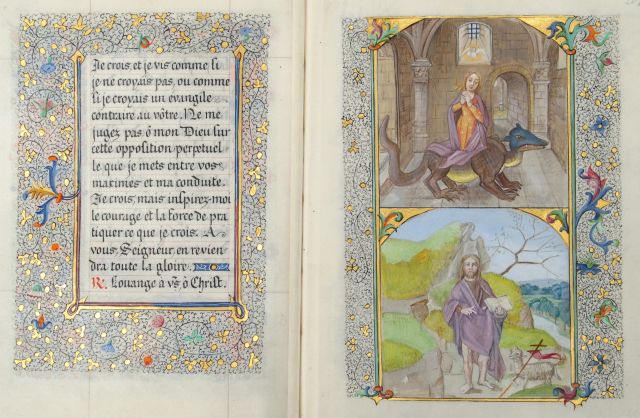 Je crois, et je vis comme si
je ne croyais pas, ou comme
si je croyais un évangile
contraire au vôtre. Ne me
jugez pas ô mon Dieu sur
cette opposition perpétuel
le que je mets entre vos
maximes et ma conduite.
Je crois, mais inspirez-moi
le courage et la force de pra
tiquer ce que je crois. A
vous, Seigneur, en revien
dra toute la gloire.
℟. Louange à vs ô Christ.